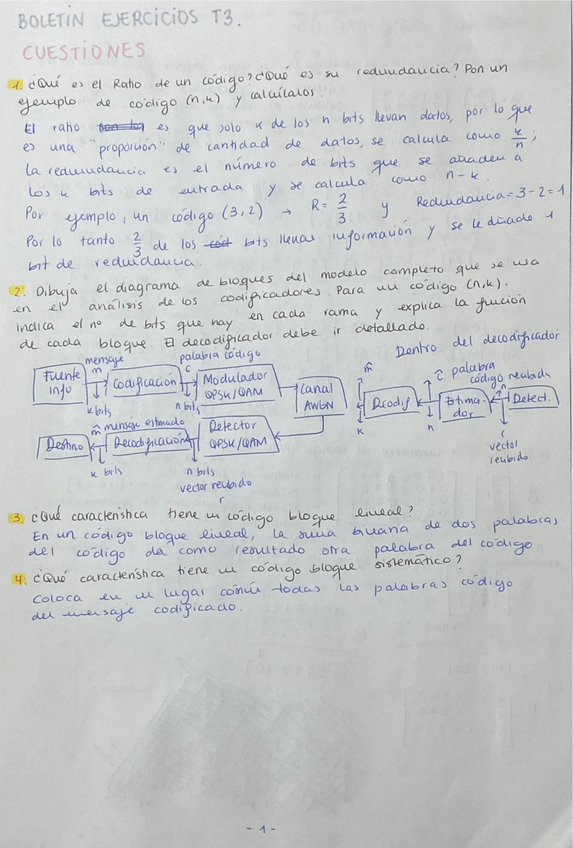 BOLETÍN EJERCICIOS T3.
CUESTIONES
1. ¿Qué es el Ratio de un código? ¿Qué es su redundancia? Pon un
ejemplo de código (n,k) y calcúlalos.
El ratio es que solo k de los n bits llevan datos, por lo que
es una "proporción" de cantidad de datos, se calcula como k/n;
la redundancia es el número de bits que se añaden a
los k bits de entrada y se calcula como n-k.
Por ejemplo, un código (3,2) → R = 2/3 y Redundancia = 3-2 = 1
Por lo tanto 2/3 de los bits llevas información y se le añade 1
bit de redundancia.
2. Dibuja el diagrama de bloques del modelo completo que se usa
en el análisis de los codificadores. Para un código (n,k).
indica el nº de bits que hay en cada rama y explica la función
de cada bloque. El decodificador debe ir detallado.
Dentro del decodificador
mensaje
m
palabra código
c
Fuente
info
Codificación
Modulador
QPSK/QAM
Canal
AWBN
k bits
n bits
m̂ mensaje estimado
Destino
Decodificación
Detector
QPSK/QAM
k bits
n bits
vector recibido
r
m̂
ĉ palabra
código recibida
Decodif
Estima-
dor
Detect.
k
n
n
r
vector
recibido
3. ¿Qué característica tiene un código bloque lineal?
En un código bloque lineal, la suma binaria de dos palabras
del código da como resultado otra palabra del código
4. ¿Qué característica tiene un código bloque sistemático?
Coloca en un lugar común todas las palabras código
del mensaje codificado.
- 1 -